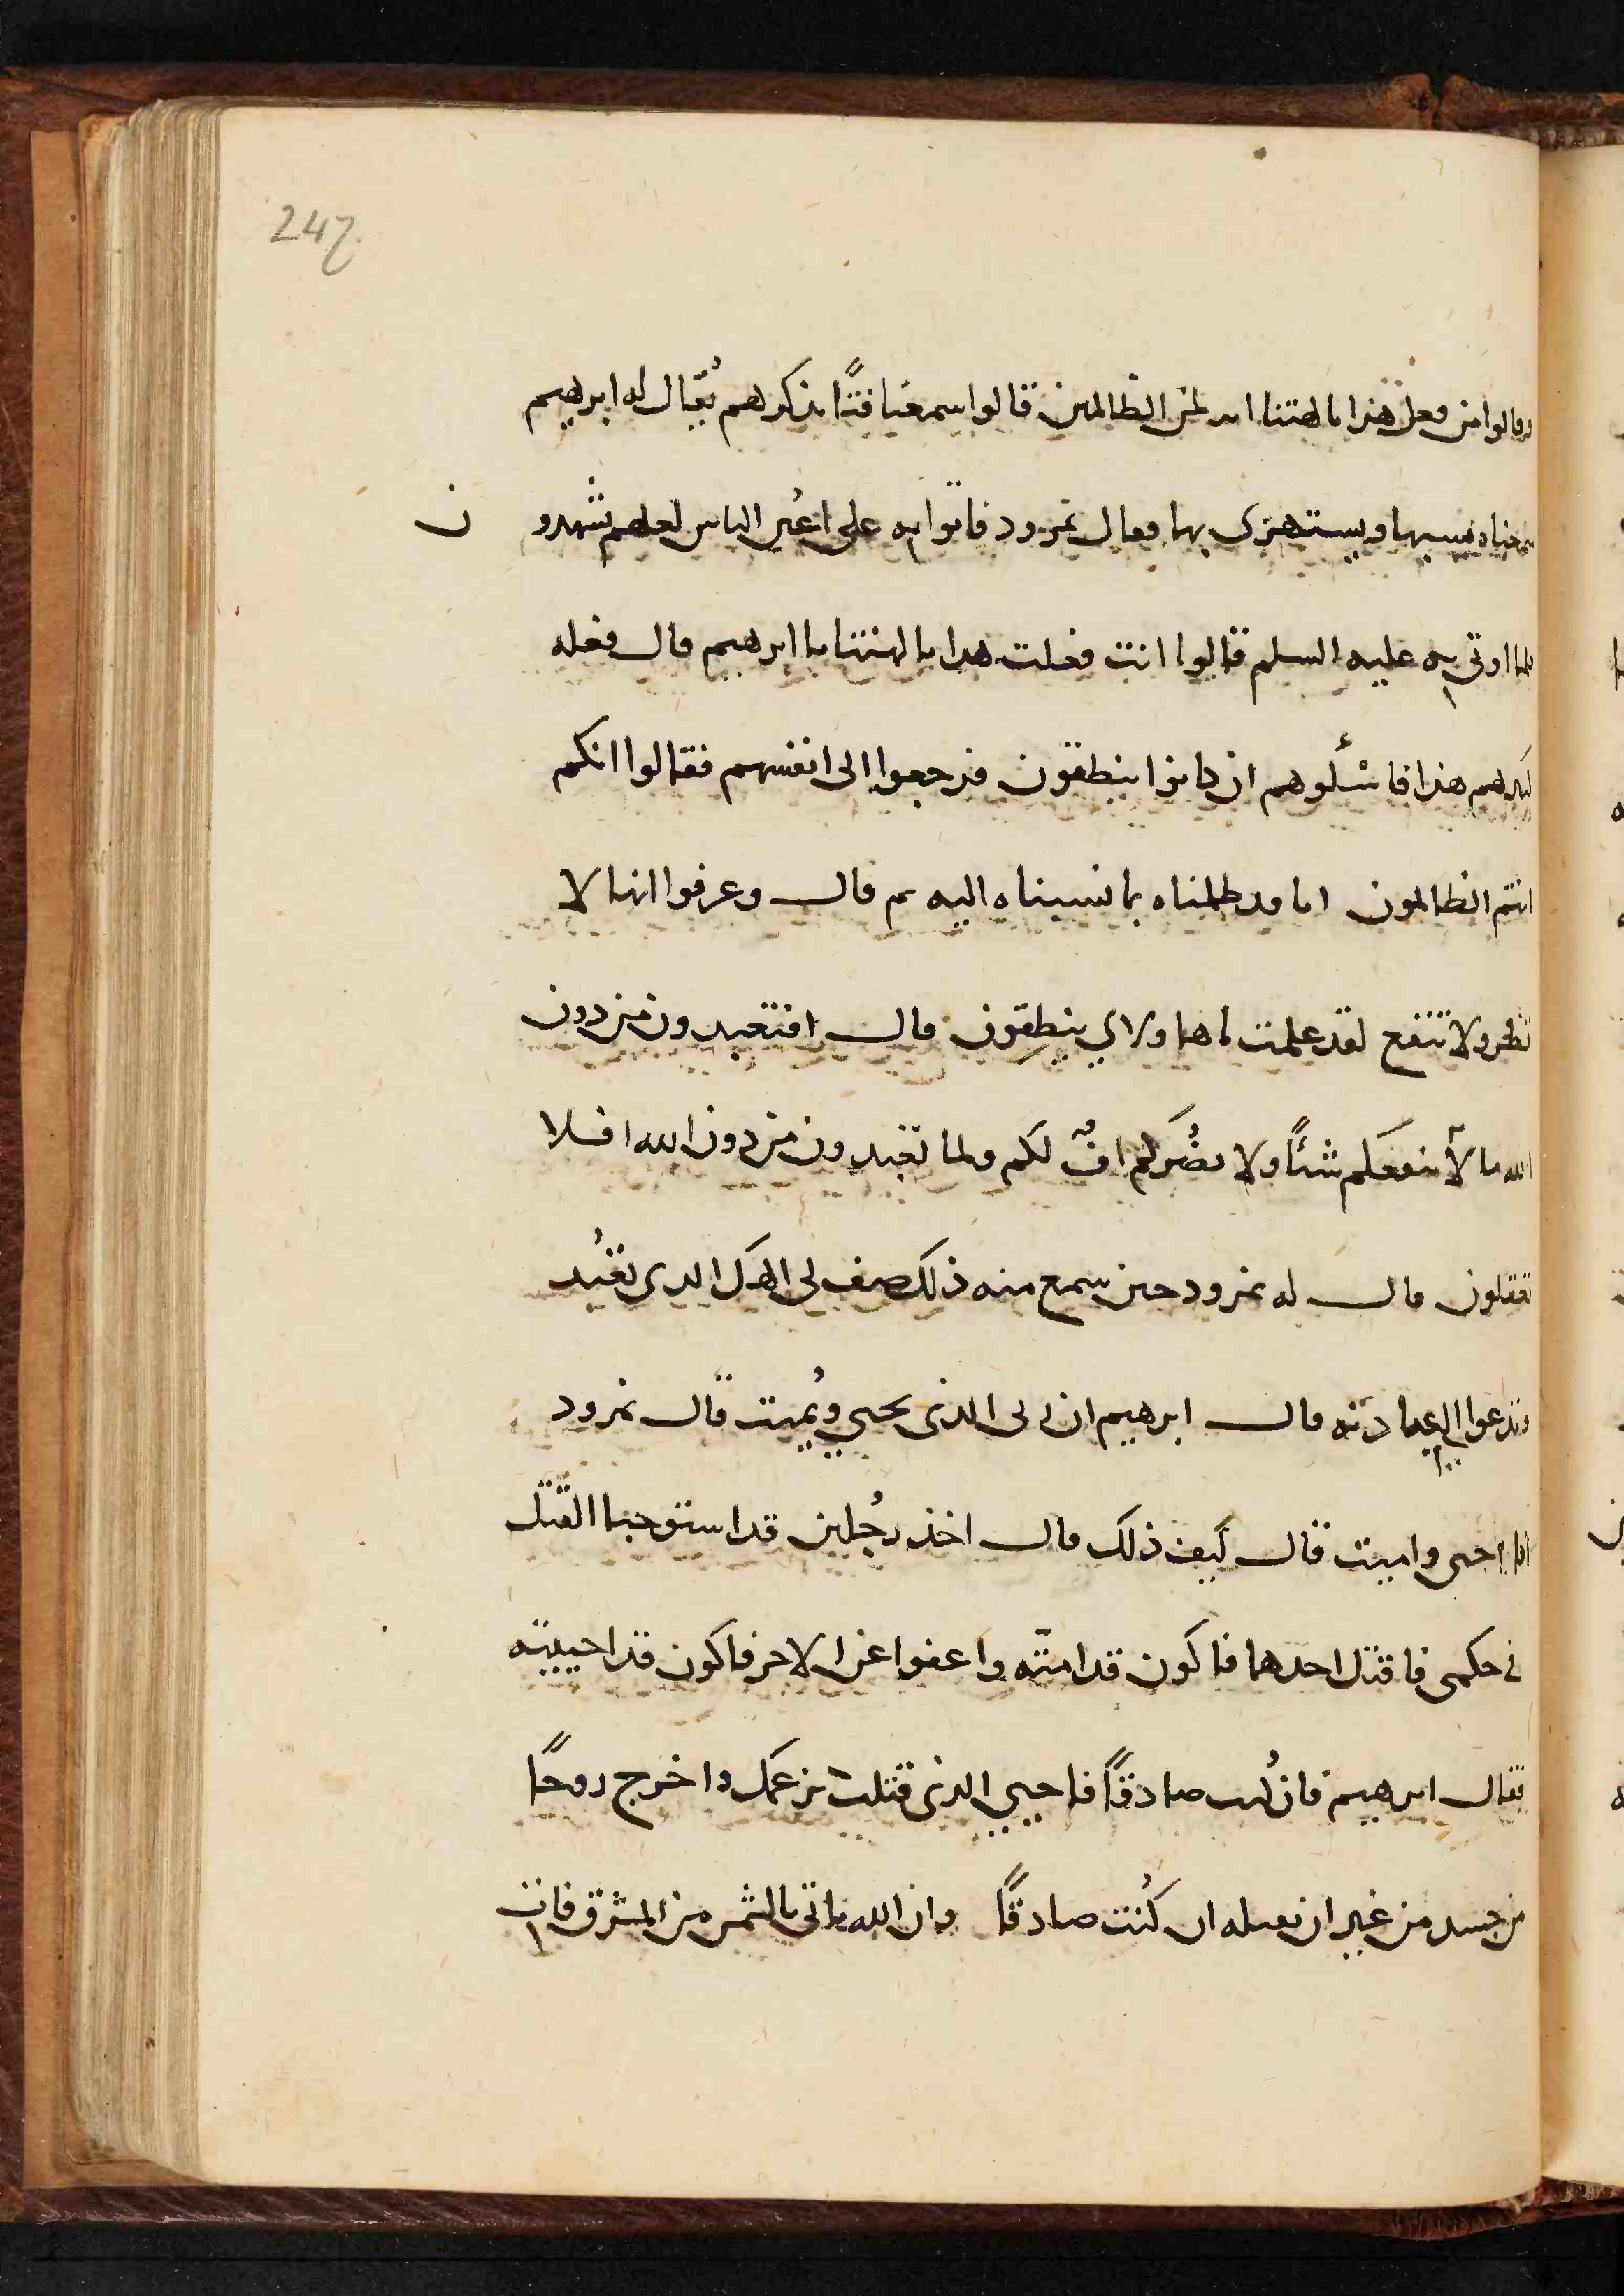 247
وقالوا من فعل هذا بالهتنا انه لمن الظالمين قالوا سمعنا فتًا يذكرهم يُقال له ابرهيم
سمعناه يسبها ويستهزى بها فقال نمرود فاتوا به على اعُين الناس لعلهم يشهدون
فلما اوتى به عليه السلم قالوا انت فعلت هذا بالهتنا يا ابرهيم قال فعله
كبيرهم هذا فاسئلوهم ان كانوا ينطقون فرجعوا الى انفسهم فقالوا انكم
انتم الظالمون انا قد ظلمناه بما نسبناه اليه ثم قال وعرفوا انها لا
تضر ولا تنفع لقد علمت ما هاولاي ينطقون قال افتعبدون من دون
الله ما لا ينفعكم شئًا ولا يضُركم افٌ لكم ولما تعبدون من دون الله افلا
تعقلون قال له نمرود حين سمع منه ذلك صف لى الهك الذى تعُبد
وتدعوا الى عبادته قال ابرهيم ان ربى الذى يحيي ويُميت قال نمرود
انا احى واميت قال كيف ذلك قال اخذ رجُلين قد استوجبا القتل
فى حكمى فاقتل احدهما فاكون قد امتّه واعفوا عن الاخر فاكون قد احييته
فقال ابرهيم فان كُنت صادقًا فاحيي الذى قتلت بزعمك واخرج روحًا
من جسد من غير ان تقتله ان كُنت صادقًا وان الله ياتى بالشمس من المشرق فات